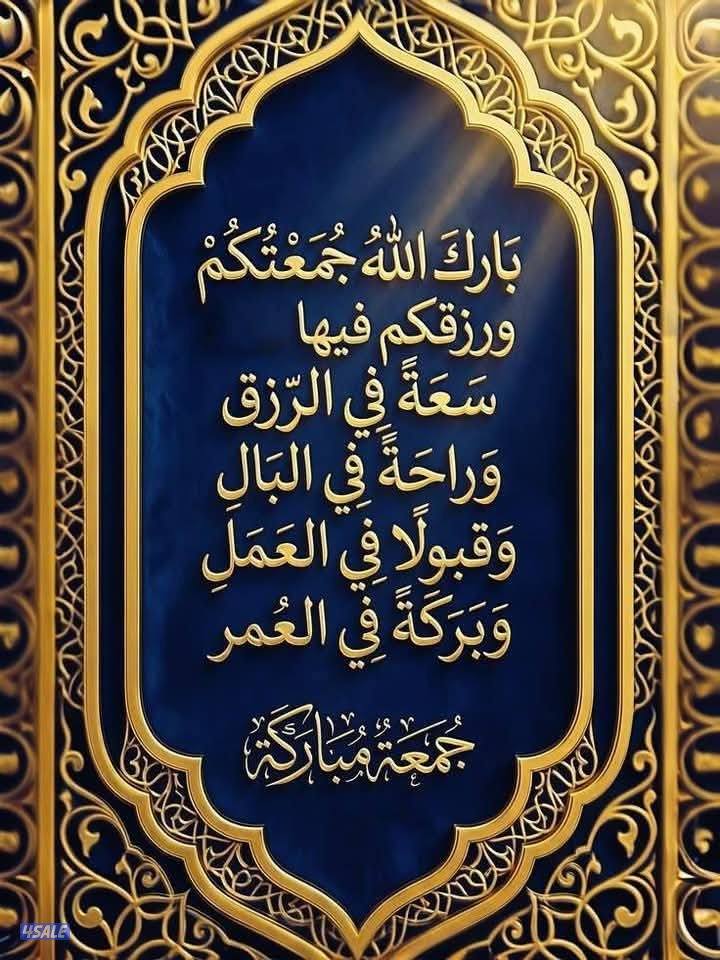 بَارِكَ اللهُ جُمَعْتُكُمْ
ورزقكم فيها
سَعَةً فِي الرّزق
وَراحَةً فِي البَالِ
وَقبولًا فِي العَمَلِ
وَبَرَكَةً فِي العُمر
جُمعَةٌ مُبَارَكَة
4SALE